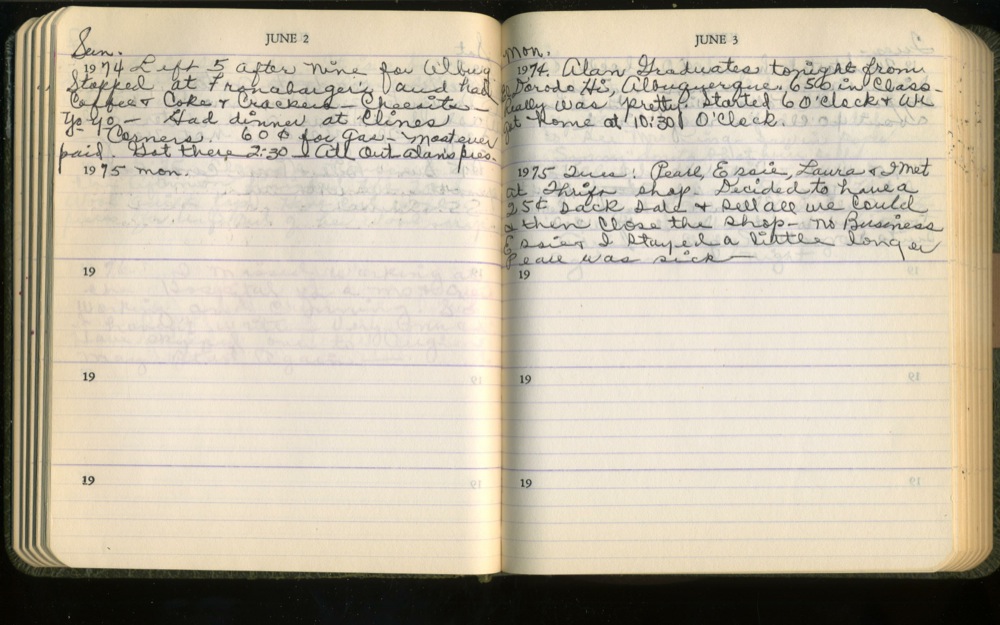 JUNE 2
Sun.
1974 Left 5 after nine for Alburq
Stopped at Fronabarger's and had
Coffee & Coke & Crackers - Cheesits -
yo-yo - Had dinner at Clines
Corners. 60¢ for Gas - most ever
paid. Got there 2:30 - All Out Alans pres.
1975 Mon.
19
19
19
JUNE 3
Mon.
1974 Alan Graduates tonight from
Dorodo Hi, Albuquerque. 656 in Class -
really was pretty. Started 6 O'clock & We
get home at 10:30 O'Clock.
1975 Tues: Pearl, Essie, Laura & I Met
at Thrift shop. Decided to have a
25¢ Sack Sale & Sell all we Could
& then Close the Shop - no Business
Essie & I Stayed a little longer
Pearl was sick -
19
19
19